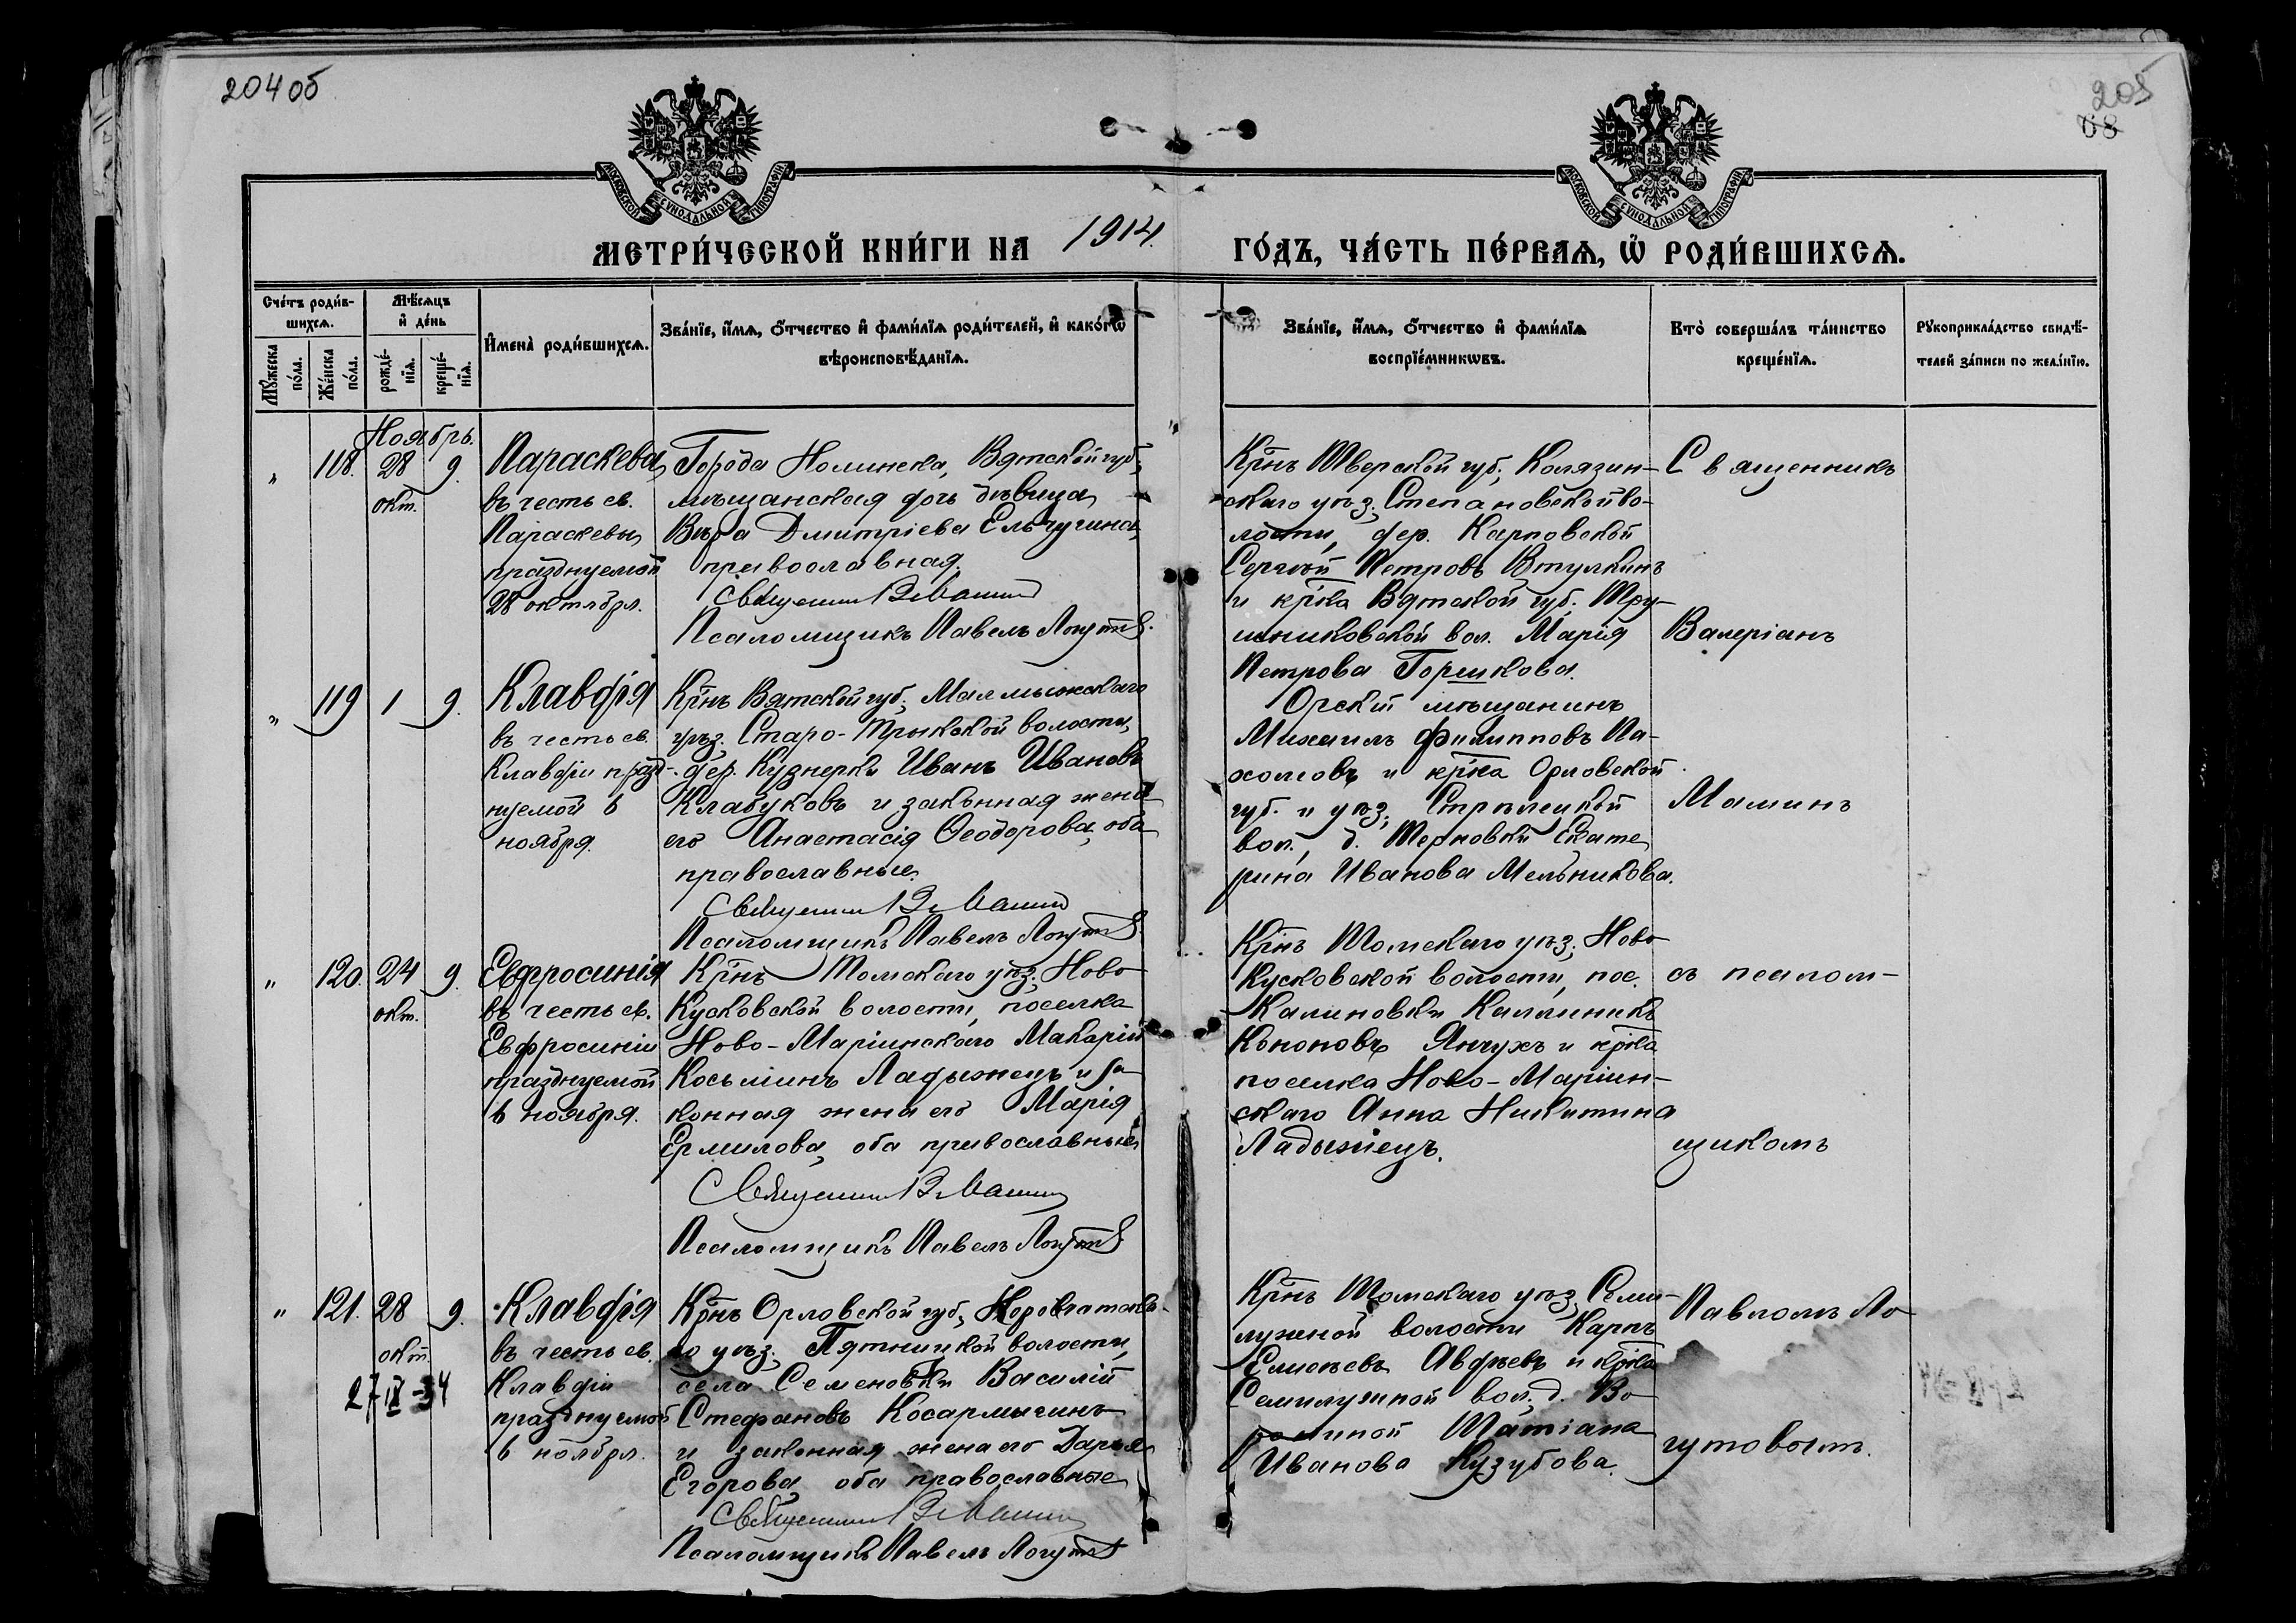 204 об
205
МОСКОВСКОЙ СѴНОДАЛЬНОЙ ТИПОГРАФІИ
МОСКОВСКОЙ СѴНОДАЛЬНОЙ ТИПОГРАФІИ
МЕТРИ́ЧЕСКОЙ КНИ́ГИ НА 1914. ГО́ДЪ, ЧА́СТЬ ПЕ́РВАѦ, Ѽ РОДИ́ВШИХСѦ.
Сче́тъ роди́в-
шихсѧ.
Мꙋ́жеска
по́ла.
Же́нска
по́ла.
Мѣ́сѧцъ
и҆ де́нь
рожде́-
нїѧ.
креще́-
нїѧ.
И҆мена̀ роди́вшихсѧ.
Зва́нїе, и҆́мѧ, ѻ҆́тчество и҆ фами́лїѧ роди́телей, и҆ како́гѡ
вѣроисповѣ́данїѧ.
Зва́нїе, и҆́мѧ, ѻ҆́тчество и҆ фами́лїѧ
воспрїе́мникѡвъ.
Кто̀ соверша́лъ та́инство
креще́нїѧ.
Рꙋкоприкла́дство свидѣ́-
телей за́писи по жела́нїю.
Ноябрь.
" 118. 28 9.
окт.
Параскева,
въ честь св.
Параскевы,
празднуемой
28 октября.
Города Нолинска, Вятской губ.,
мѣщанская дочь дѣвица
Вѣра Дмитріева Ельчугина,
православная.
Священникъ В Маминъ
Псаломщикъ Павелъ Логутовъ.
Кр̄нъ Тверской губ., Колязин-
скаго уѣз. Степановской во-
лости, дер. Карповской
Сергѣй Петровъ Втулкинъ
и кр̄ка Вятской губ. Тру-
шниковской вол. Марія
Петрова Горшкова.
Священникъ
Валеріанъ
" 119 1 9.
Клавдія
въ честь св.
Клавдіи празд-
нуемой 6
ноября.
Кр̄нъ Вятской губ., Малмыжскаго
уѣз. Старо-Трыкской волости,
дер. Кузнерки Иванъ Ивановъ
Клабуковъ и законная жена
его Анастасія Ѳеодорова, оба
православные.
Священникъ В Маминъ
Псаломщикъ Павелъ Логутовъ
Орскій мѣщанинъ
Михаилъ Филипповъ Па-
холковъ и кр̄ка Орловской
губ. и уѣз., Стрѣлецкой
вол., д. Терновки Екате
рина Иванова Мельникова.
Маминъ
" 120. 24 9.
окт.
Евфросинія
въ честь св.
Евфросиніи
празднуемой
6 ноября.
Кр̄нъ Томскаго уѣз., Ново
Кусковской волости, поселка
Ново-Маріинскаго Макарій
Косьминъ Ладыжецъ и за-
конная жена его Марія
Ермилова, оба православные
Священникъ В Маминъ
Псаломщикъ Павелъ Логутовъ
Кр̄нъ Томскаго уѣз., Ново
Кусковской волости, пос.
Калиновки Каллиникъ
Кононовъ Янчухъ и кр̄ка
поселка Ново-Маріин-
скаго Анна Никитина
Ладыжецъ.
съ псалом-
щикомъ
" 121. 28 9.
окт.
27 IX -34
Клавдія
въ честь св.
Клавдіи
празднуемой
6 ноября.
Кр̄нъ Орловской губ.,
го уѣз. Пятницкой волости,
села Семеновки Василій
Стефановъ Косармыгинъ
и законная жена его Дарья
Егорова, оба православные
Священникъ В Маминъ
Псаломщикъ Павелъ Логутовъ
Кр̄нъ Томскаго уѣз. Семи-
лужной волости Карпъ
Елисѣевъ Авдѣевъ и кр̄ка
Семилужной вол. д. Во
Татіана
Иванова Кузубова.
Павломъ Ло
гутовымъ.